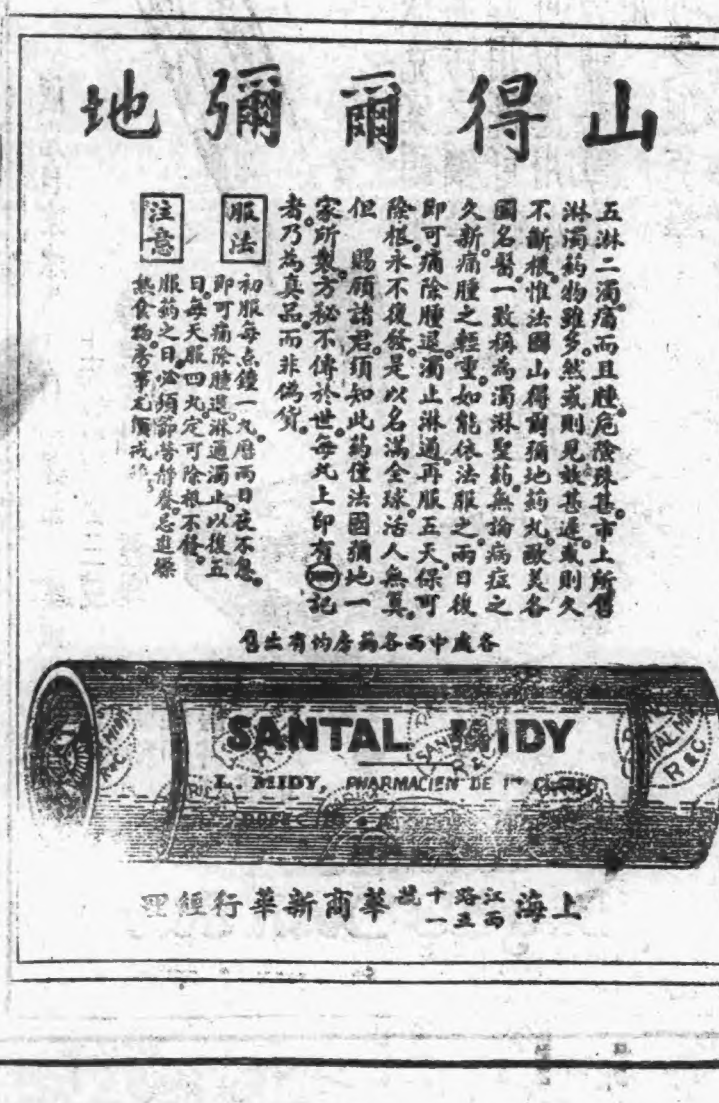 山得爾彌地
五淋二濁。痛而且腫。危險殊甚。市上所售
淋濁葯物雖多。然或則見效甚遲。或則久
不斷根。惟法國山得爾彌地葯丸。歐美各
國名醫一致稱為濁淋聖葯。無論病症之
久新。痛腫之輕重。如能依法服之。兩日後
即可痛除腫退。濁止淋通。再服五天。保可
除根。永不復發。是以名滿全球。活人無算。
但 賜顧諸君。須知此葯僅法國彌地一
家所製。方秘不傳於世。每丸上印有MIDY記
者。乃為真品。而非偽貨。
服法
初服每点鐘一丸。歷兩日夜不息。
即可痛除腫退。淋通濁止。以後五
日。每天服四丸。定可除根不發。
注意
服葯之日。必須節勞靜養。忌進燥
熱食物。房事尤須戒
各處中西各葯房均有出售
SANTAL MIDY
L. MIDY, PHARMACIEN DE 1re
DOSE
SANTAL MIDY
R&C
上海江西路五十一號華商新華行經理